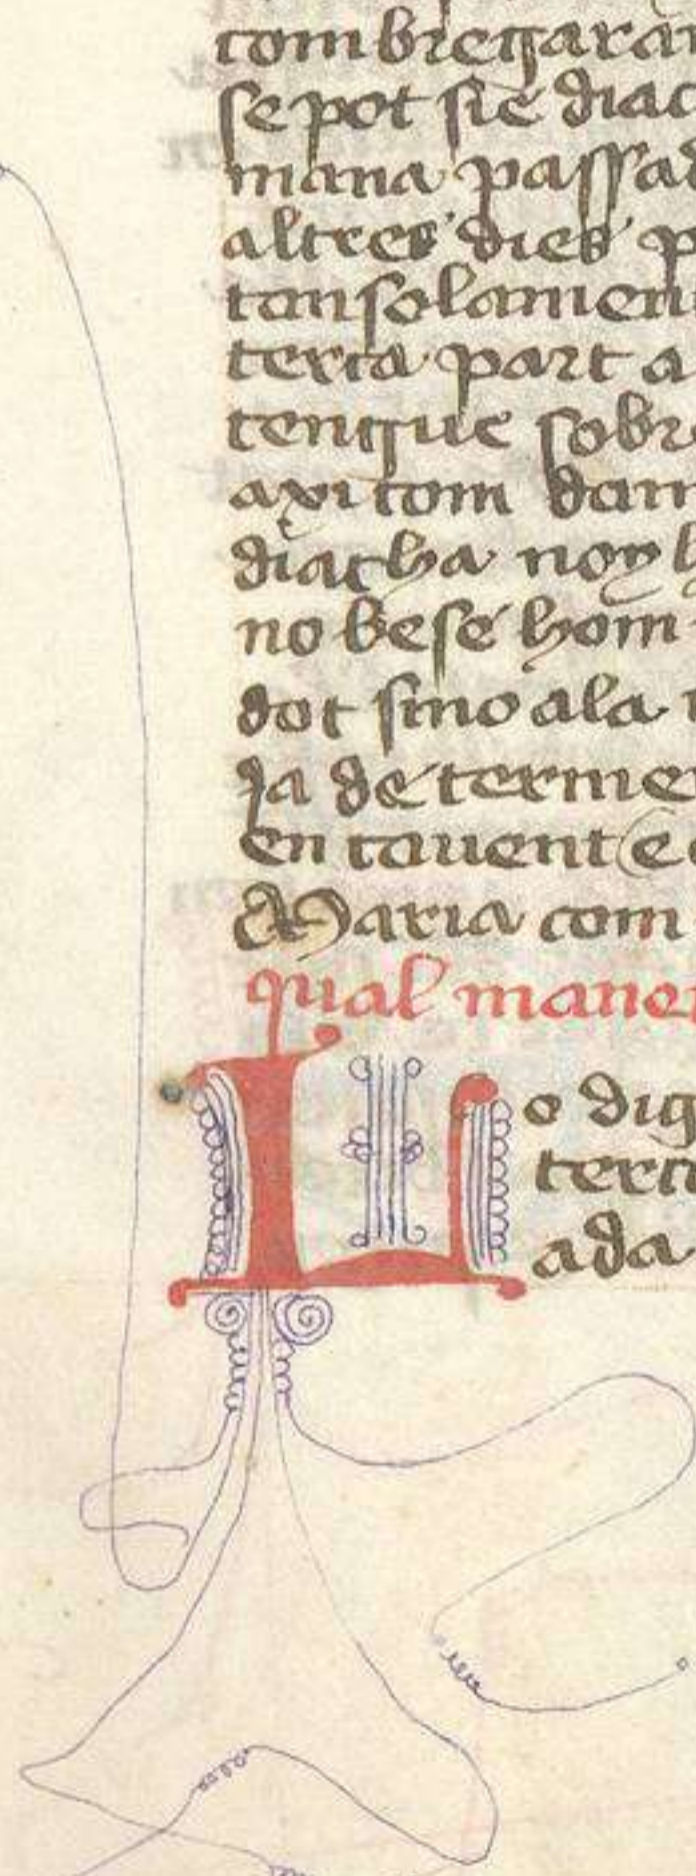 combregaran
se pot sie diac
mana passad
altres dies p
consolamen
terça part a
tengue sobr
axi com dam
diacha noy h
no bese hom
dot sino ala
da de termen
en couent e
Maria com
qual maner
Lo dig
terci
ada